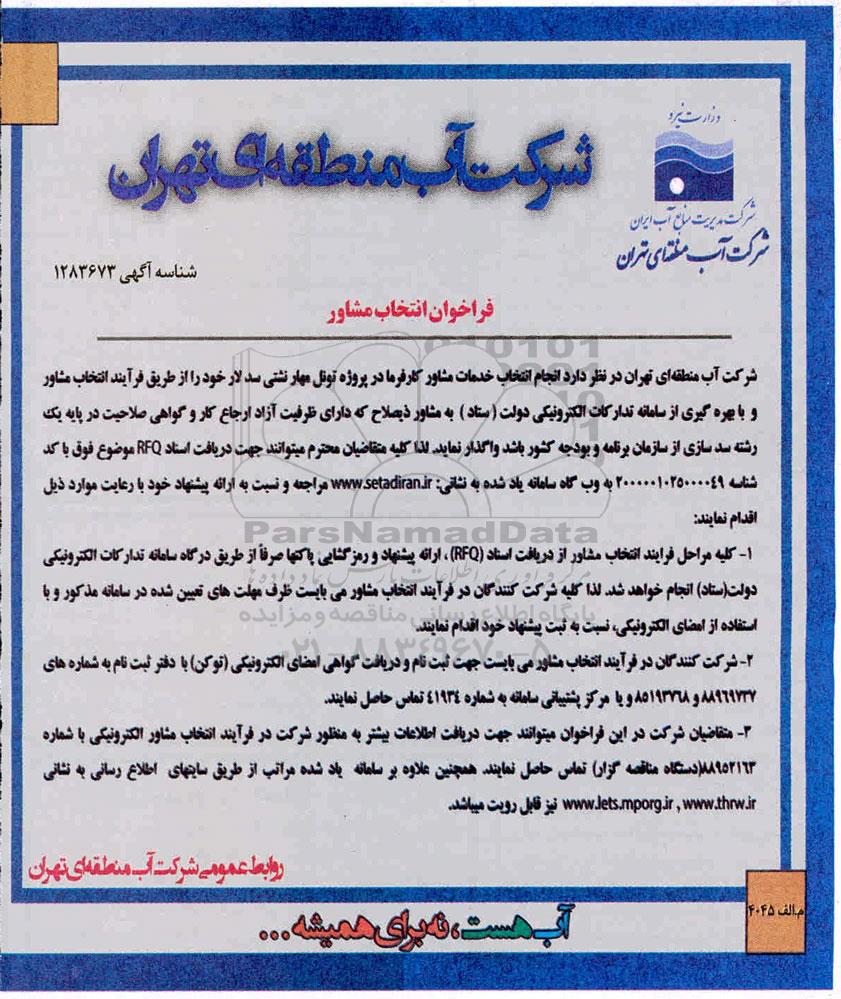 وزارت نیرو
شرکت مدیریت منابع آب ایران
شرکت آب منطقه‌ای تهران
شرکت آب منطقه‌ای تهران
شناسه آگهی ۱۲۸۳۶۷۳
فراخوان انتخاب مشاور
شرکت آب منطقه‌ای تهران در نظر دارد انجام انتخاب خدمات مشاور کارفرما در پروژه تونل مهار نشتی سد لار خود را از طریق فرآیند انتخاب مشاور
و با بهره گیری از سامانه تدارکات الکترونیکی دولت ( ستاد ) به مشاور ذیصلاح که دارای ظرفیت آزاد ارجاع کار و گواهی صلاحیت در پایه یک
رشته سد سازی از سازمان برنامه و بودجه کشور باشد واگذار نماید. لذا کلیه متقاضیان محترم میتوانند جهت دریافت اسناد RFQ موضوع فوق با کد
شناسه ۲۰۰۰۰۰۱۰۲۵۰۰۰۰۴۹ به وب گاه سامانه یاد شده به نشانی: www.setadiran.ir مراجعه و نسبت به ارائه پیشنهاد خود با رعایت موارد ذیل
اقدام نمایند:
ParsNamadData
۱- کلیه مراحل فرایند انتخاب مشاور از دریافت اسناد (RFQ) ، ارائه پیشنهاد و رمزگشایی پاکتها صرفاً از طریق درگاه سامانه تدارکات الکترونیکی
دولت(ستاد) انجام خواهد شد. لذا کلیه شرکت کنندگان در فرآیند انتخاب مشاور می بایست ظرف مهلت های تعیین شده در سامانه مذکور و با
پایگاه اطلاع رسانی مناقصه و مزایده
استفاده از امضای الکترونیکی، نسبت به ثبت پیشنهاد خود اقدام نمایند.
۰۲۱-۸۸۳۴۹۶۷۰-۵
۲- شرکت کنندگان در فرآیند انتخاب مشاور می بایست جهت ثبت نام و دریافت گواهی امضای الکترونیکی (توکن) با دفتر ثبت نام به شماره های
۸۸۹۶۹۷۳۷ و ۸۵۱۹۳۷۶۸ و یا مرکز پشتیبانی سامانه به شماره ۴۱۹۳۴ تماس حاصل نمایند.
۳- متقاضیان شرکت در این فراخوان میتوانند جهت دریافت اطلاعات بیشتر به منظور شرکت در فرآیند انتخاب مشاور الکترونیکی با شماره
۸۸۹۵۲۱۶۳(دستگاه مناقصه گزار) تماس حاصل نمایند. همچنین علاوه بر سامانه یاد شده مراتب از طریق سایتهای اطلاع رسانی به نشانی
www.thrw.ir , www.lets.mporg.ir نیز قابل رویت میباشد.
روابط عمومی شرکت آب منطقه‌ای تهران
م.الف ۴۰۴۵
آب هست، نه برای همیشه ...